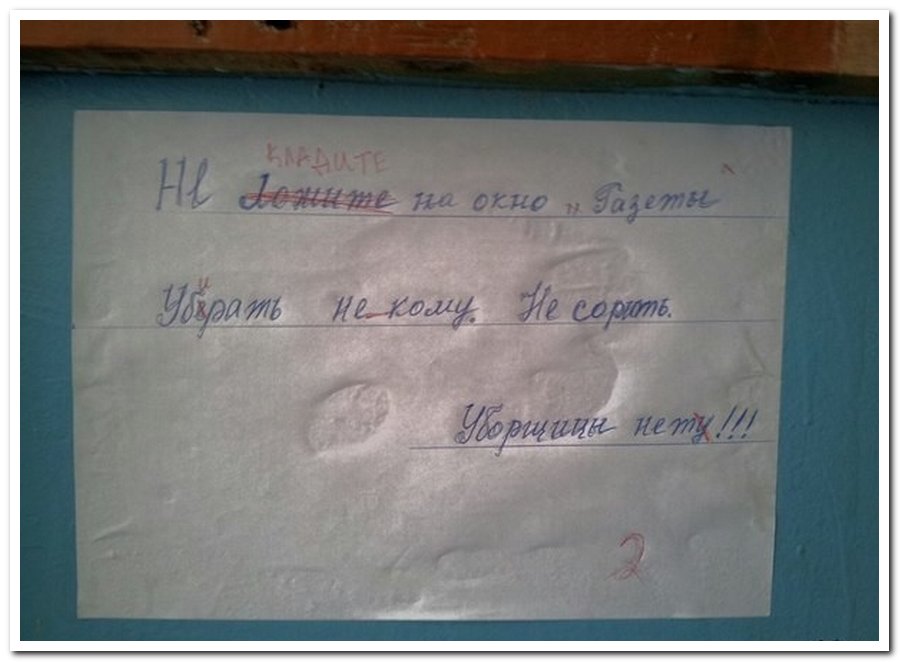 КЛАДИТЕ
Не Ложите на окно " Газеты "
Убирать не кому. Не сорить.
Уборщицы нету!!!
2